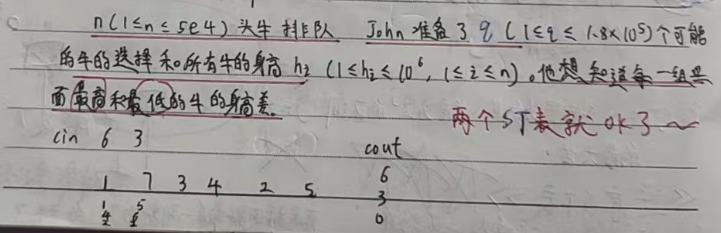 n(1≤n≤5e4) 头牛排队 John 准备了 q (1≤q≤1.8×10⁵)个可能
的牛的选择和所有牛的身高 hi (1≤hi≤10⁶, 1≤i≤n)。他想知道每一组里
面最高和最低的牛的身高差.
两个ST表就OK了~
cin 6 3
cout
1 7 3 4 2 5
6
3
0
1 5
4
2